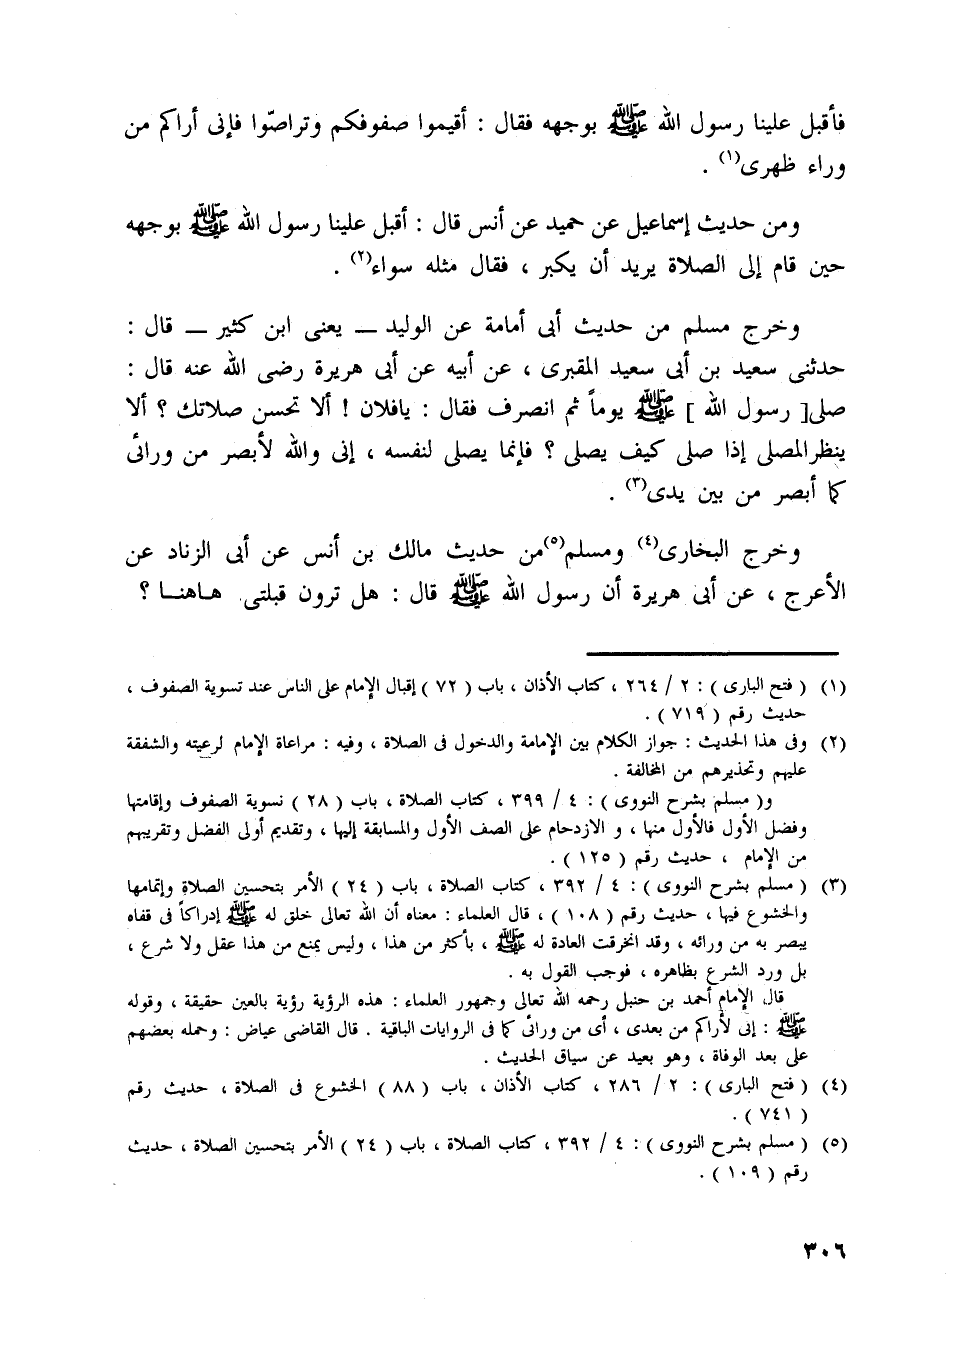 فأقبل علينا رسول الله ﷺ بوجهه فقال : أقيموا صفوفكم وتراصّوا فإنى أراكم من
وراء ظهرى(١) .
ومن حديث إسماعيل عن حميد عن أنس قال : أقبل علينا رسول الله ﷺ بوجهه
حين قام إلى الصلاة يريد أن يكبر ، فقال مثله سواء(٢) .
وخرج مسلم من حديث أبى أمامة عن الوليد ــ يعنى ابن كثير ــ قال :
حدثنى سعيد بن أبى سعيد المقبرى ، عن أبيه عن أبى هريرة رضى الله عنه قال :
صلى[ رسول الله ] ﷺ يوماً ثم انصرف فقال : يافلان ! ألا تحسن صلاتك ؟ ألا
ينظرالمصلى إذا صلى كيف يصلى ؟ فإنما يصلى لنفسه ، إنى والله لأبصر من ورائى
كما أبصر من بين يدى(٣) .
وخرج البخارى(٤) ومسلم(٥)من حديث مالك بن أنس عن أبى الزناد عن
الأعرج ، عن أبى هريرة أن رسول الله ﷺ قال : هل ترون قبلتى هـاهنـا ؟
(١) ( فتح البارى ) : ٢ / ٢٦٤ ، كتاب الأذان ، باب ( ٧٢ ) إقبال الإمام على الناس عند تسوية الصفوف ،
حديث رقم ( ٧١٩ ) .
(٢) وفى هذا الحديث : جواز الكلام بين الإمامة والدخول فى الصلاة ، وفيه : مراعاة الإمام لرعيته والشفقة
عليهم وتحذيرهم من المخالفة .
و( مسلم بشرح النووى ) : ٤ / ٣٩٩ ، كتاب الصلاة ، باب ( ٢٨ ) تسوية الصفوف وإقامتها
وفضل الأول فالأول منها ، و الازدحام على الصف الأول والمسابقة إليها ، وتقديم أولى الفضل وتقريبهم
من الإمام ، حديث رقم ( ١٢٥ ) .
(٣) ( مسلم بشرح النووى ) : ٤ / ٣٩٢ ، كتاب الصلاة ، باب ( ٢٤ ) الأمر بتحسين الصلاة وإتمامها
والخشوع فيها ، حديث رقم ( ١٠٨ ) ، قال العلماء : معناه أن الله تعالى خلق له ﷺ إدراكاً فى قفاه
يبصر به من ورائه ، وقد انخرقت العادة له ﷺ ، بأكثر من هذا ، وليس يمنع من هذا عقل ولا شرع ،
بل ورد الشرع بظاهره ، فوجب القول به .
قال الإمام أحمد بن حنبل رحمه الله تعالى وجمهور العلماء : هذه الرؤية رؤية بالعين حقيقة ، وقوله
ﷺ : إنى لأراكم من بعدى ، أى من ورائى كما فى الروايات الباقية . قال القاضى عياض : وحمله بعضهم
على بعد الوفاة ، وهو بعيد عن سياق الحديث .
(٤) ( فتح البارى ) : ٢ / ٢٨٦ ، كتاب الأذان ، باب ( ٨٨ ) الخشوع فى الصلاة ، حديث رقم
( ٧٤١ ) .
(٥) ( مسلم بشرح النووى ) : ٤ / ٣٩٢ ، كتاب الصلاة ، باب ( ٢٤ ) الأمر بتحسين الصلاة ، حديث
رقم ( ١٠٩ ) .
٣٠٦